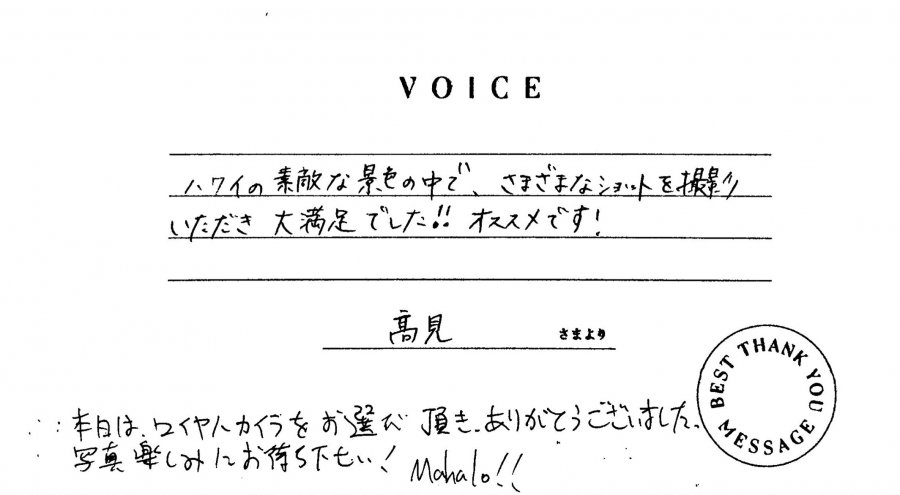 VOICE
ハワイの素敵な景色の中で、さまざまなショットを撮影
いただき大満足でした!! オススメです!
髙見 さまより
BEST THANK YOU MESSAGE
本日は、ロイヤルカイラをお選び頂き、ありがとうございました。
写真楽しみにお待ち下さい! Mahalo!!